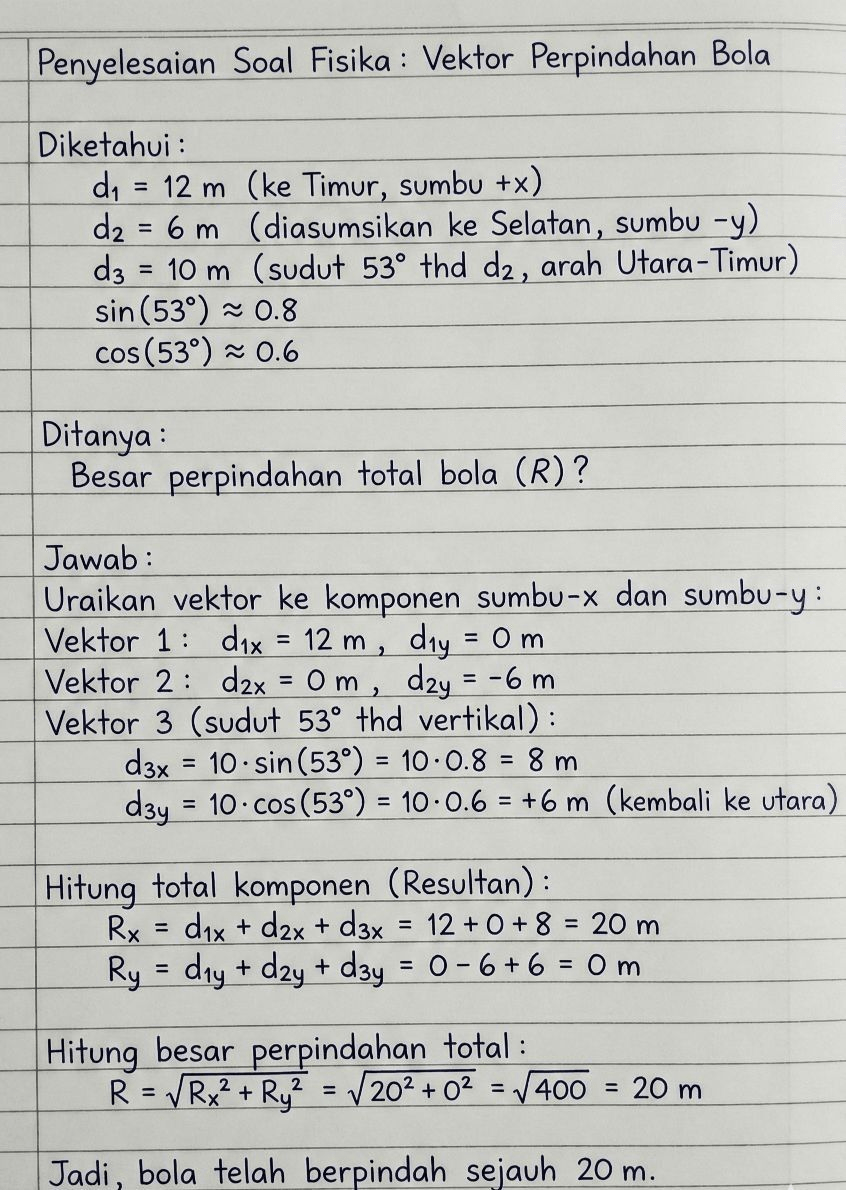 Penyelesaian Soal Fisika : Vektor Perpindahan Bola
Diketahui :
d₁ = 12 m (ke Timur, sumbu +x)
d₂ = 6 m (diasumsikan ke Selatan, sumbu -y)
d₃ = 10 m (sudut 53° thd d₂, arah Utara-Timur)
sin(53°) ≈ 0.8
cos(53°) ≈ 0.6
Ditanya :
Besar perpindahan total bola (R)?
Jawab :
Uraikan vektor ke komponen sumbu-x dan sumbu-y :
Vektor 1 : d₁ₓ = 12 m , d₁y = 0 m
Vektor 2 : d₂ₓ = 0 m , d₂y = -6 m
Vektor 3 (sudut 53° thd vertikal) :
d₃ₓ = 10·sin(53°) = 10·0.8 = 8 m
d₃y = 10·cos(53°) = 10·0.6 = +6 m (kembali ke utara)
Hitung total komponen (Resultan) :
Rₓ = d₁ₓ + d₂ₓ + d₃ₓ = 12 + 0 + 8 = 20 m
Ry = d₁y + d₂y + d₃y = 0 - 6 + 6 = 0 m
Hitung besar perpindahan total :
R = √(Rₓ² + Ry²) = √(20² + 0²) = √400 = 20 m
Jadi, bola telah berpindah sejauh 20 m.